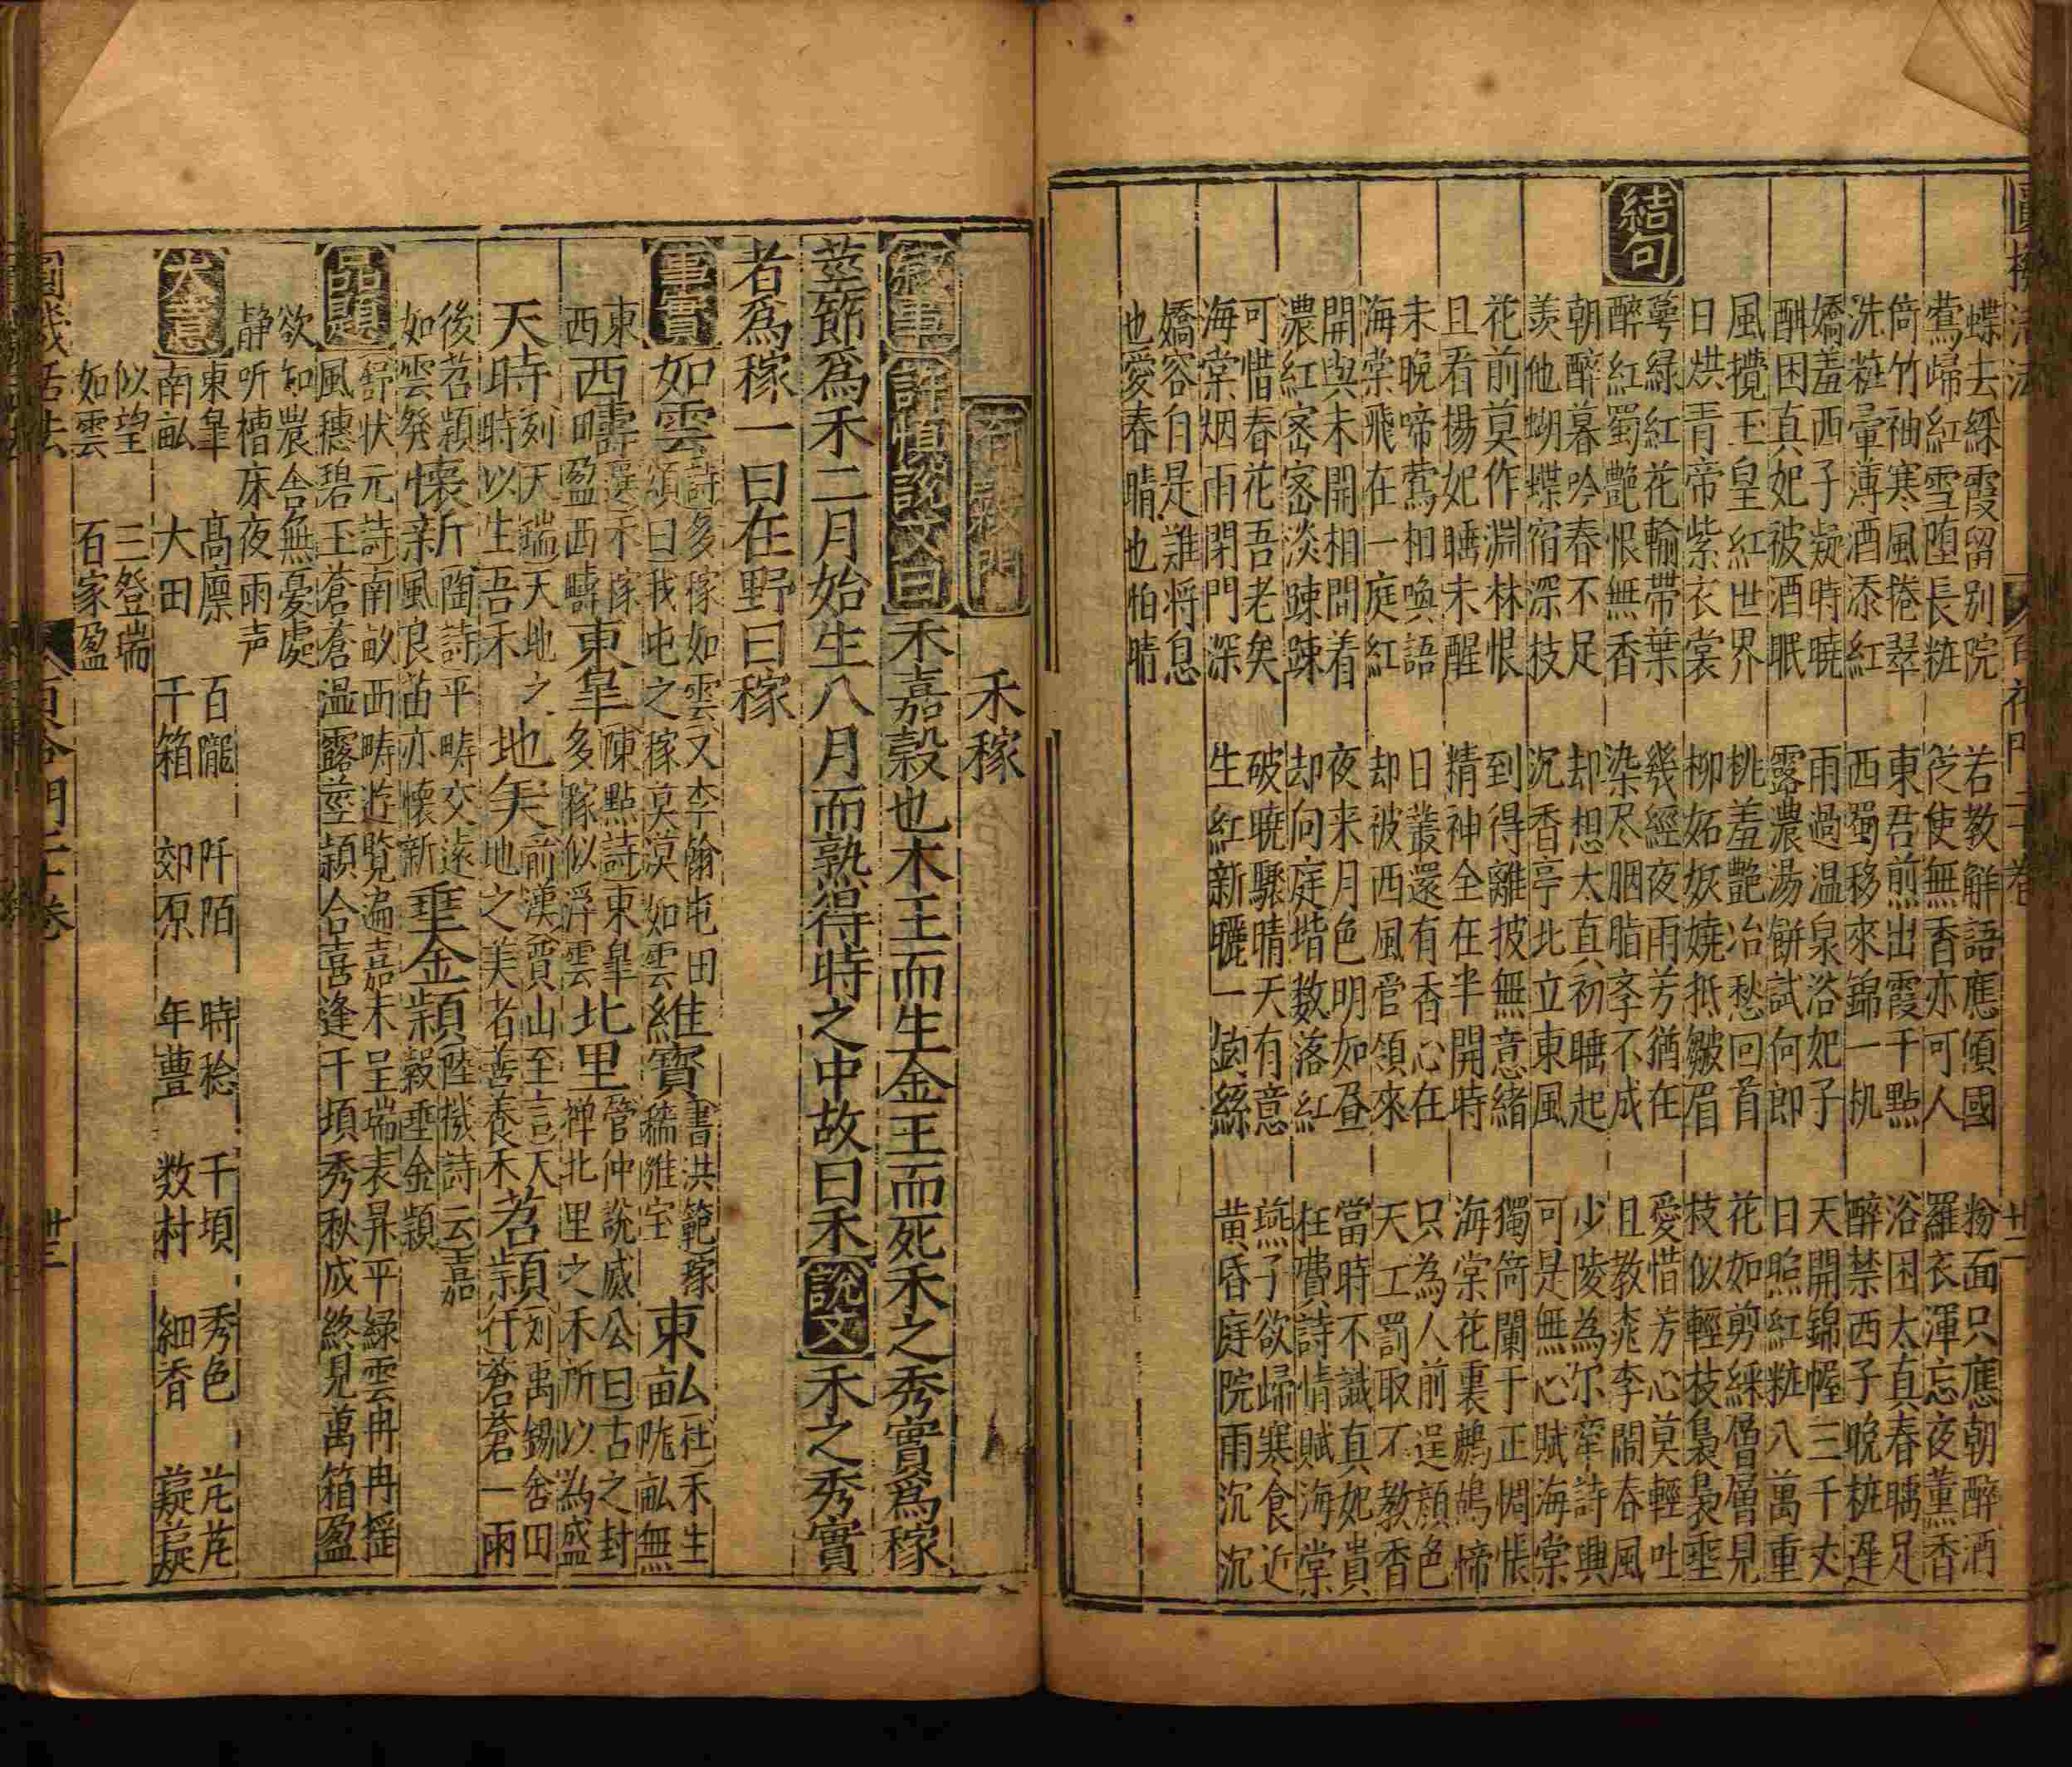 圓機活法 百花門二十卷 廿二
蝶去綵霞留别院 若教解語應傾國 粉面只應朝醉酒
鶯歸紅雪堕長粧 從使無香亦可人 羅衣渾忘夜薰香
倚竹袖寒風捲翠 東君煎出霞千點 浴困太真春睡足
洗粧暈薄酒添紅 西蜀移來錦一机 醉禁西子晚粧遲
嬌羞西子凝時曉 雨過温泉浴妃子 天開錦幄三千丈
酣困真妃被酒眠 露濃湯餅試何郎 日照紅粧八萬重
風攪玉皇紅世界 桃羞艷冶愁回首 花如剪綵層層見
日烘青帝紫衣裳 柳妬妖嬈抵皺眉 枝似輕枝裊裊垂
結句
萼緑紅花輸帶葉 幾經夜雨芳猶在 愛惜芳心莫輕吐
醉紅蜀艷恨無香 染尽胭脂李不成 且教桃李閙春風
朝醉暮吟春不足 却想太真初睡起 少陵為尔牽詩興
羨他蝴蝶宿深枝 沉香亭北立東風 可是無心賦海棠
花前莫作淵林恨 到得離披無意緒 獨倚闌干正惆悵
且看楊妃睡未醒 精神全在半開時 海棠花裏鷓鴣啼
未晚啼鶯相喚語 日叢還有香心在 只為人前逞顔色
海棠飛在一庭紅 却被西風管領來 天工罰取不教香
開與未開相間着 夜来月色明如昼 當時不識真妃貴
濃紅宻宻淡踈踈 却向庭堦数落紅 枉費詩情賦海棠
可惜春花吾老矣 破曉驟晴天有意 燕子欲歸寒食近
海棠烟雨閉門深 生紅新曬一鈎絲 黄昏庭院雨沉沉
嬌容自是難将息
也愛春晴也怕晴
百穀門 禾稼
叙事 許慎說文曰 禾嘉榖也木王而生金王而死禾之秀實爲稼
莖節爲禾二月始生八月而熟得時之中故曰禾 說文 禾之秀實
者爲稼一曰在野曰稼
事實 如雲 詩多稼如雲又李翰屯田頌曰我屯之稼漠漠如雲 維寶 書洪範稼穡維宝 東畝 社禾生隴畝無
東西 西疇 選禾稼西田盈西疇 東皐 陳點詩東皐多稼似浮雲 北里 管仲說威公曰古之封禅北里之禾所以為盛
天時 刻天瑞天地之時時以生吾禾 地美 前漢賈山至言天地之美者善養禾 苕頴 刘禹錫舍田仟蒼蒼一雨
後苕頴如雲發 懐新 陶詩平疇交遠風良苗亦懐新 垂金頴 陸機詩云嘉穀垂金頴
品題 舒状元詩南畝西疇遊覧遍嘉禾呈瑞表昇平緑雲冉冉揺
風穗碧玉蒼蒼温露莖頴合喜逢千頃秀秋成終見萬箱盈
欲知農舍無憂處
静听槽床夜雨声
大意 東皐 髙廪 百隴 阡陌 時稔 千頃 秀色 芃芃
南畝 大田 千箱 郊原 年豊 数村 細香 薿薿
似望 三登瑞
如雲 百家盈
圓機活法 百谷門二十卷 廿三